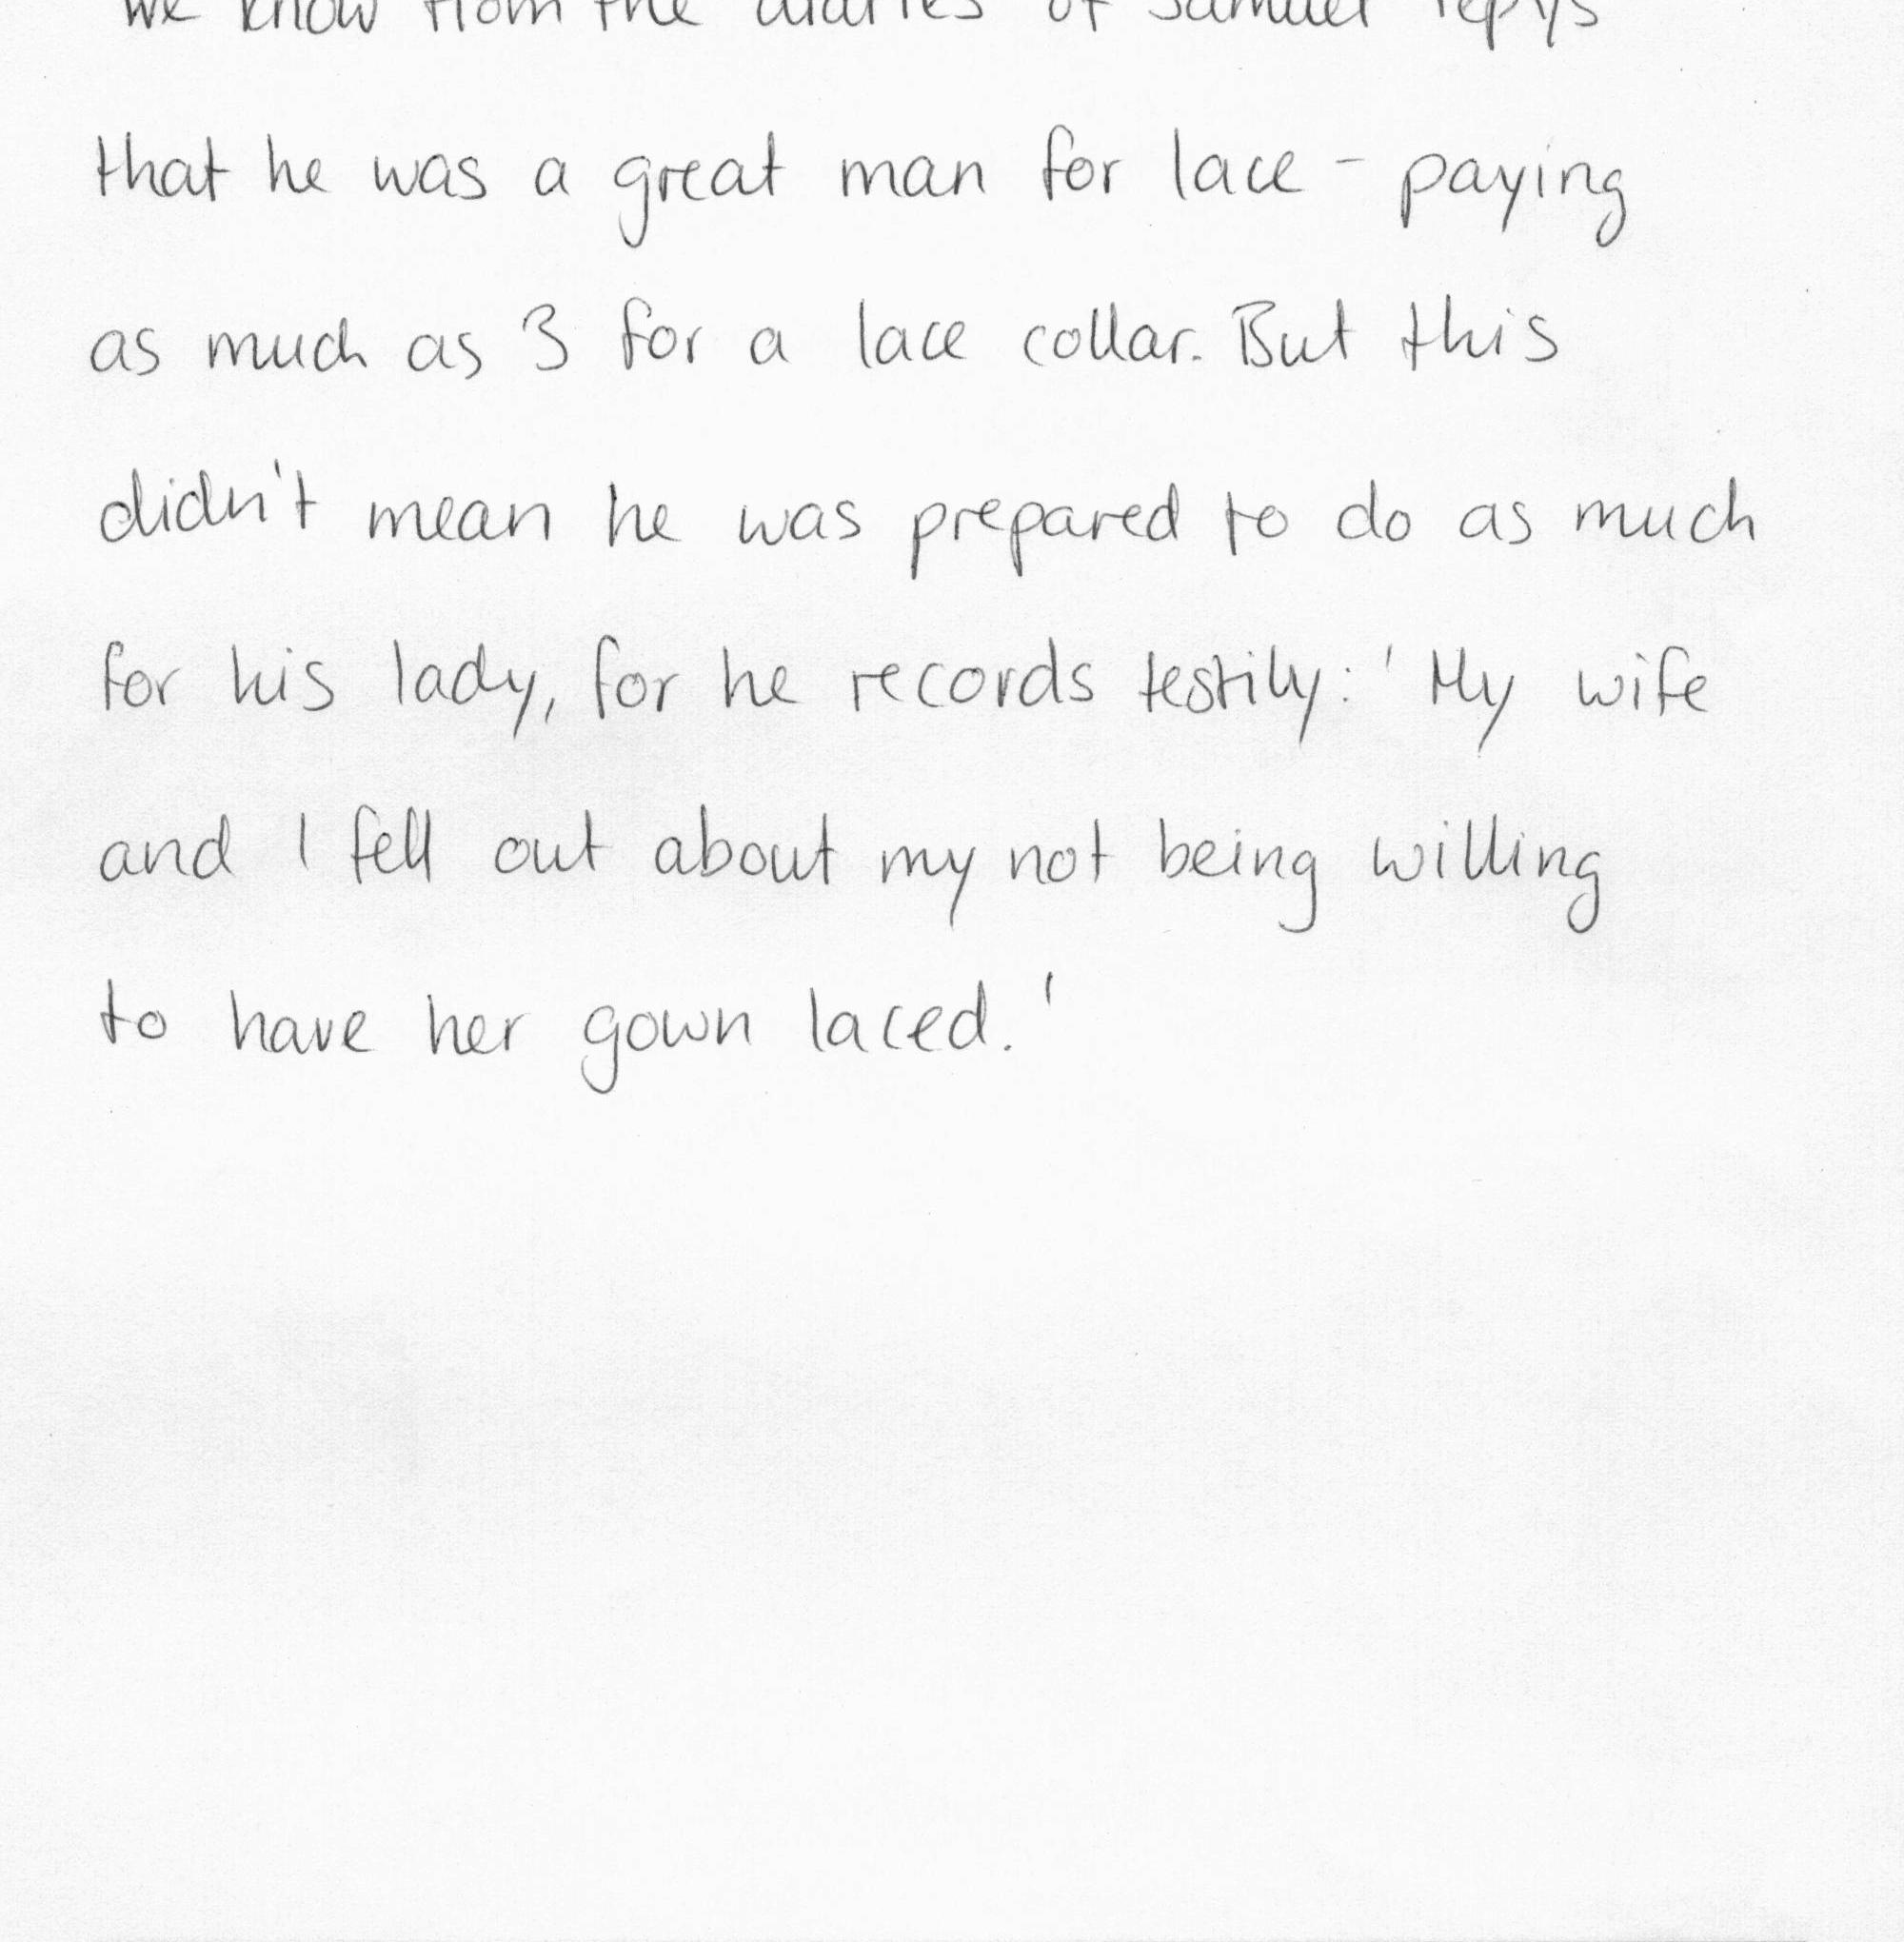 we know from the diaries of Samuel Pepys
that he was a great man for lace - paying
as much as 3 for a lace collar. But this
didn't mean he was prepared to do as much
for his lady, for he records testily: ' My wife
and I fell out about my not being willing
to have her gown laced. '